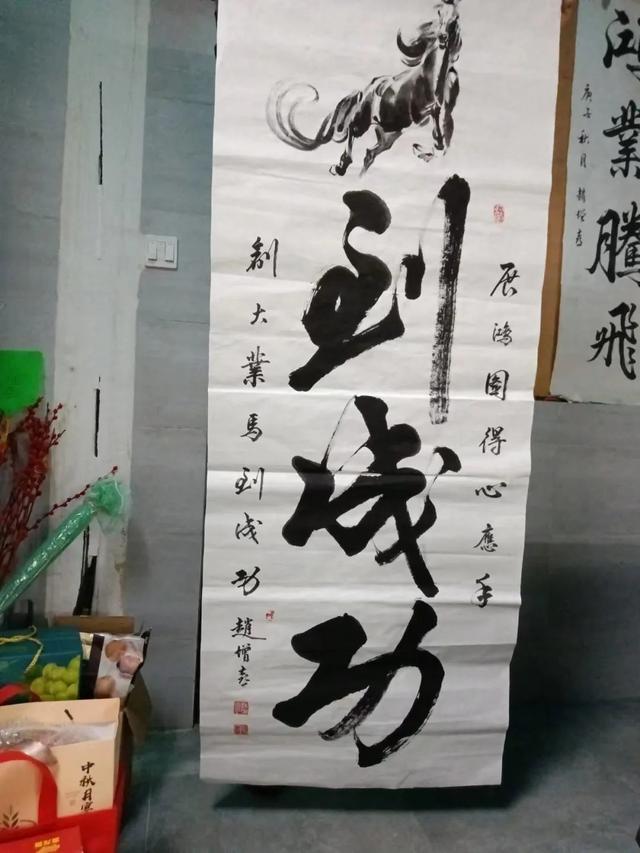 到成功
展鴻圖得心應手
創大業馬到成功
趙增春
鴻業騰飛
庚子秋月 趙增春
中秋月